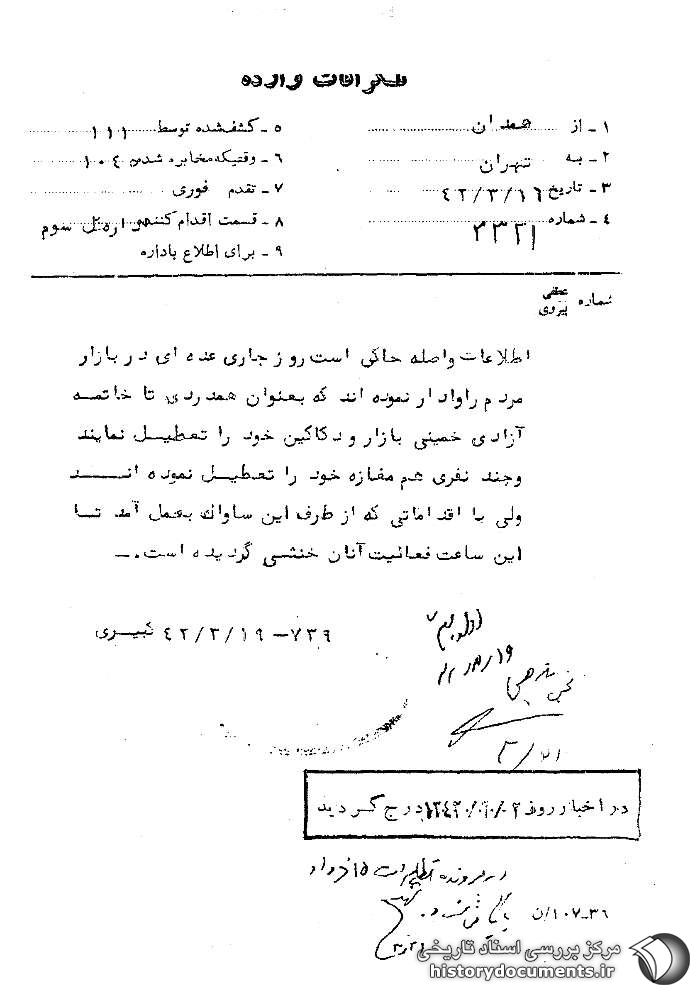 تلگرافات وارده
۱ ـ از همدان
۲ ـ به تهران
۳ ـ تاریخ ۴۲/۳/۱۶
۴ ـ شماره ۳۳۲۱
۵ ـ کشفشده توسط ۱۱۱
۶ ـ وقتیکه مخابره شده ۱۰۴۰
۷ ـ تقدم فوری
۸ ـ قسمت اقدام کننده اداره کل سوم
۹ ـ برای اطلاع باداره
شماره عطفی
پیروی
اطلاعات واصله حاکی است روز جاری عده ای در بازار
مردم را وادار نموده اند که بعنوان همدردی تا خاتمه
آزادی خمینی بازار و دکاکین خود را تعطیل نمایند
وچند نفری هم مغازه خود را تعطیل نموده انـــد
ولی با اقداماتی که از طرف این ساواك بعمل آمد تا
این ساعت فعالیت آنان خنثی گردیده است.ـ
۷۳۹ – ۴۲/۳/۱۹ کبیری
در اخبار روز درج گردید
در پرونده تظاهرات ۱۵ خرداد
۱۰۷-۳۶/ن
مرکز بررسی اسناد تاریخی
historydocuments.ir